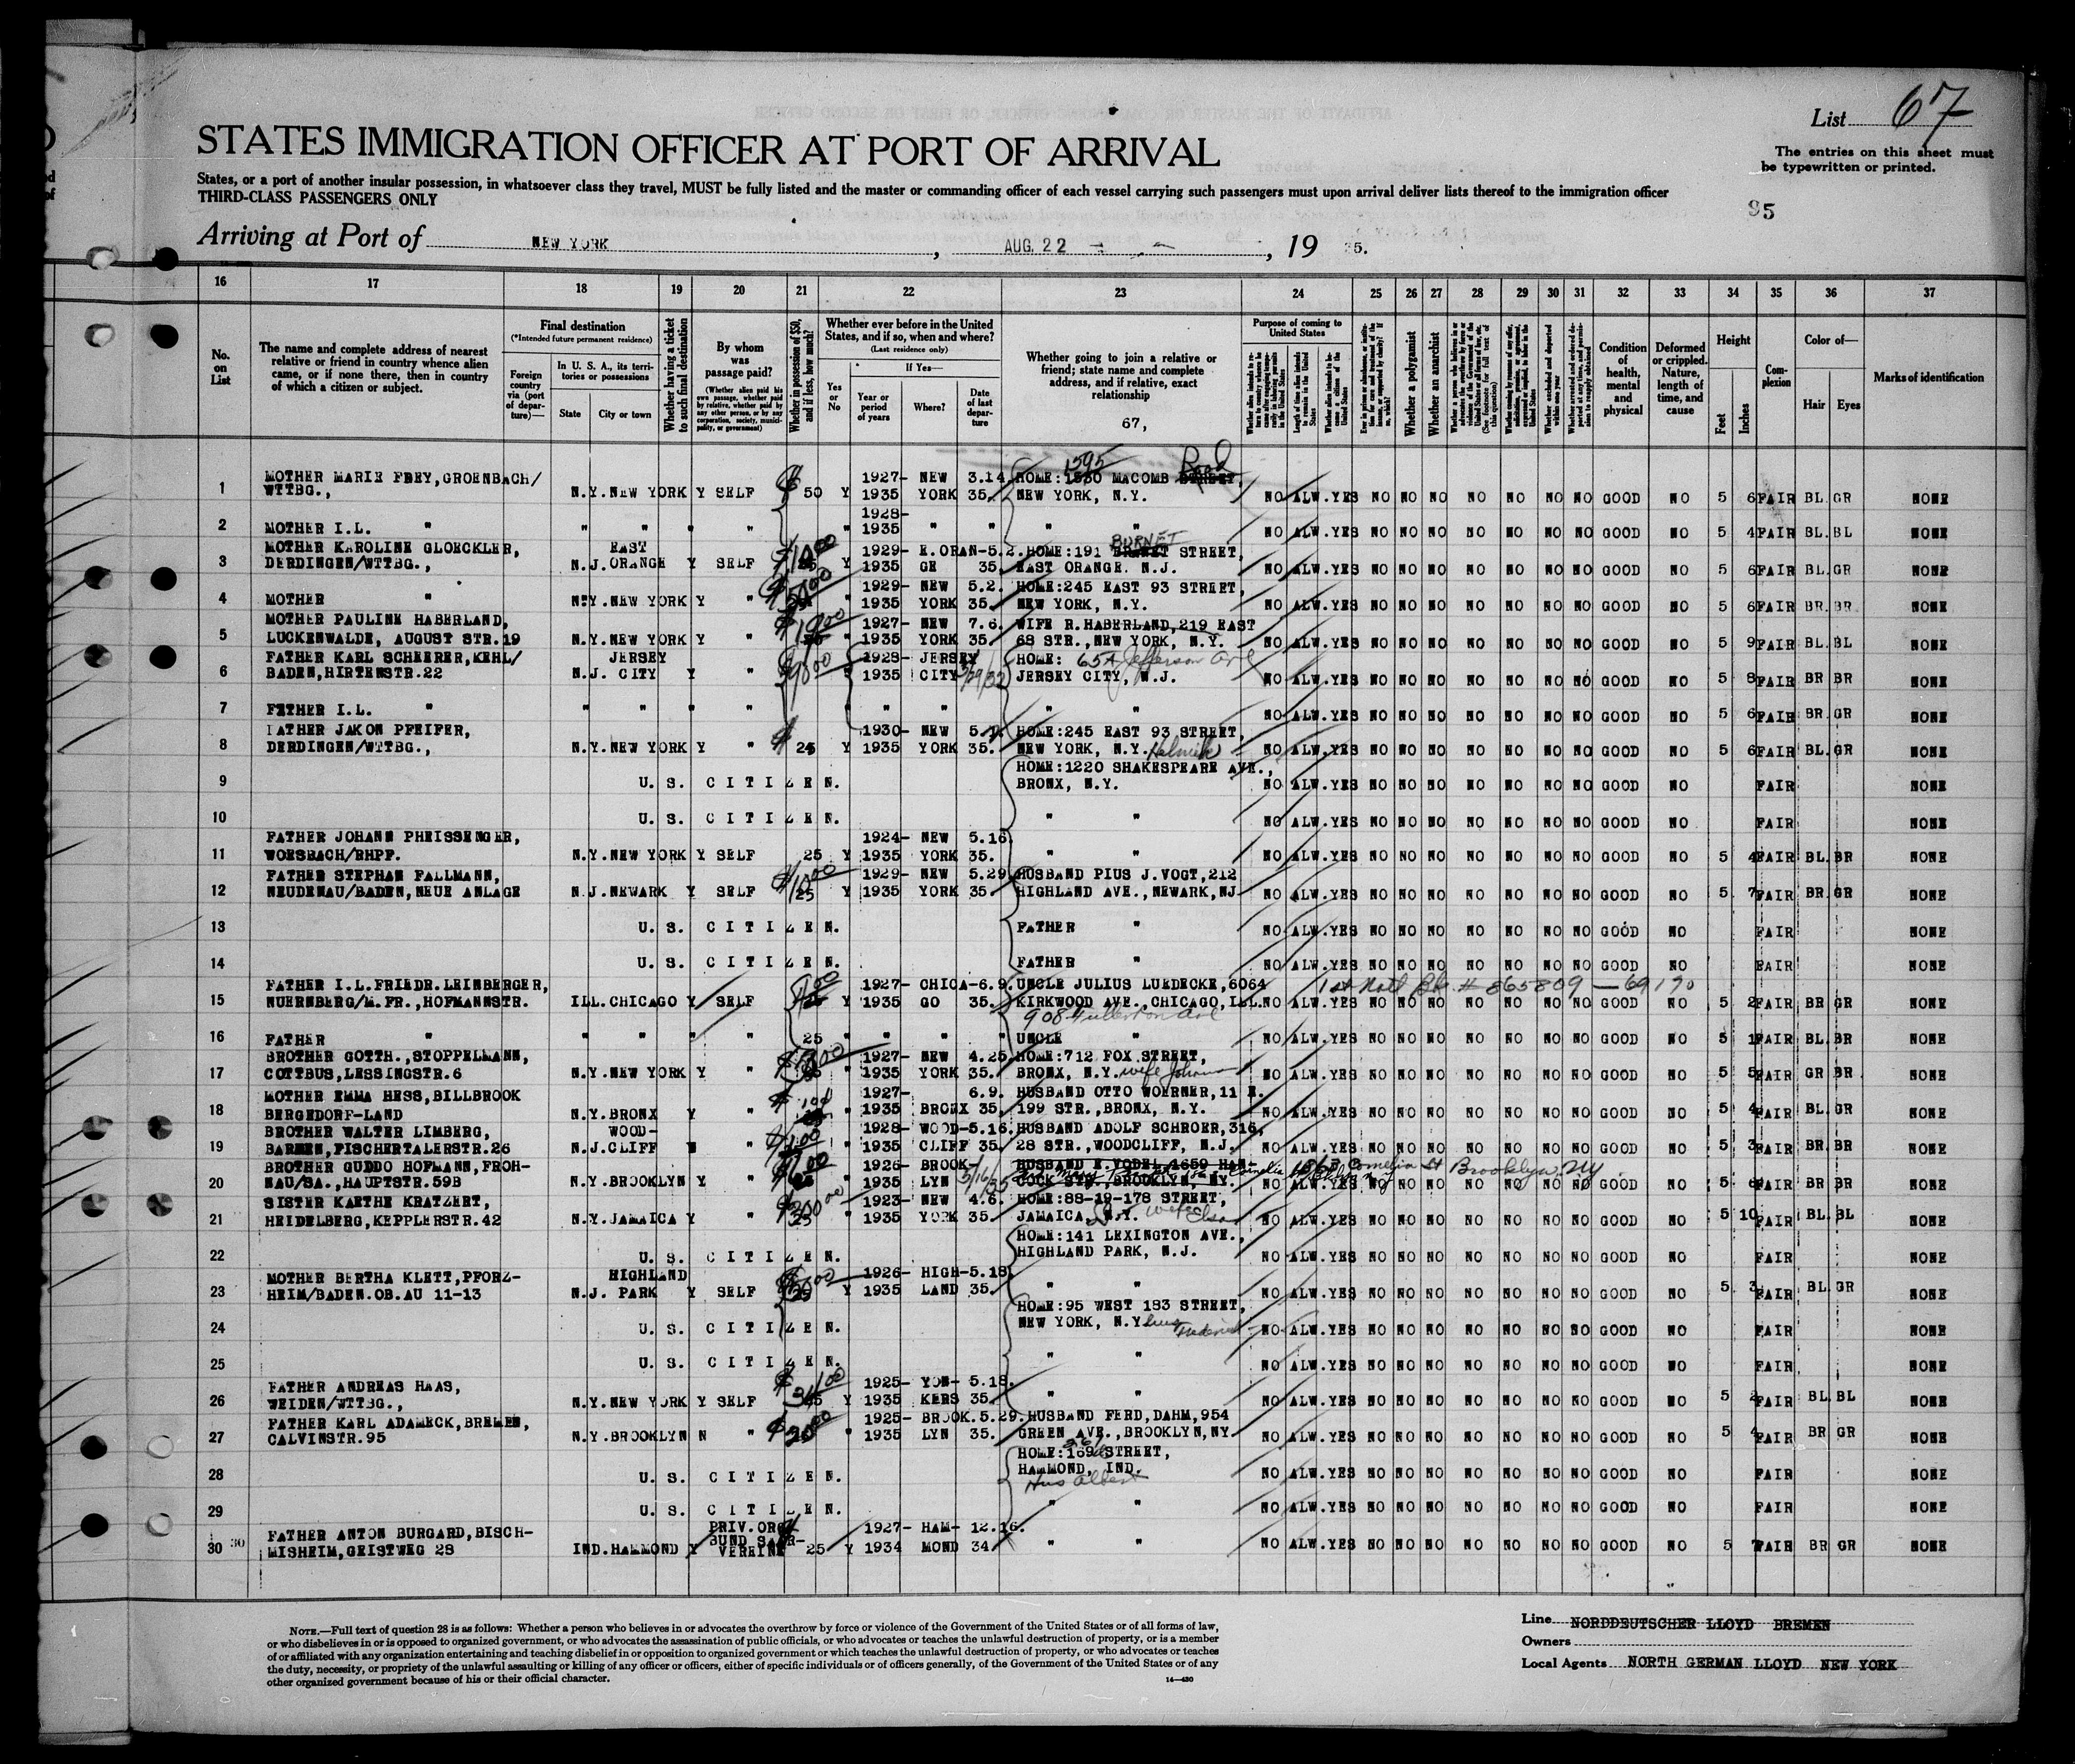 List 67
STATES IMMIGRATION OFFICER AT PORT OF ARRIVAL
The entries on this sheet must
be typewritten or printed.
States, or a port of another insular possession, in whatsoever class they travel, MUST be fully listed and the master or commanding officer of each vessel carrying such passengers must upon arrival deliver lists thereof to the immigration officer
THIRD-CLASS PASSENGERS ONLY
95
Arriving at Port of NEW YORK, AUG. 22, 19 35.
16 17 18 19 20 21 22 23 24 25 26 27 28 29 30 31 32 33 34 35 36 37
No. on List
The name and complete address of nearest relative or friend in country whence alien came, or if none there, then in country of which a citizen or subject.
Final destination
(*Intended future permanent residence)
Foreign country via (port of departure)—
In U. S. A., its territories or possessions
State
City or town
Whether having a ticket to such final destination
By whom was passage paid?
(Whether alien paid his own passage, whether paid by relative, whether paid by any other person, or by any corporation, society, municipality, or government)
Whether in possession of $50, and if less, how much?
Whether ever before in the United States, and if so, when and where?
(Last residence only)
Yes or No
If Yes—
Year or period of years
Where?
Date of last departure
Whether going to join a relative or friend; state name and complete address, and if relative, exact relationship
67,
Purpose of coming to United States
Whether a polygamist
Whether an anarchist
Condition of health, mental and physical
Deformed or crippled. Nature, length of time, and cause
Height
Feet
Inches
Complexion
Color of—
Hair
Eyes
Marks of identification
1 MOTHER MARIE FREY, GROENBACH/ WTTBG., N.Y. NEW YORK Y SELF $ 50 Y 1927-1935 NEW YORK 3.14.35. HOME: 1595 MACOMB Road NEW YORK, N.Y. NO ALW. YES NO NO NO NO NO NO NO GOOD NO 5 6 FAIR BL. GR NONE
2 MOTHER I.L. " " " " " " 1928-1935 " " " " NO ALW. YES NO NO NO NO NO NO NO GOOD NO 5 4 FAIR BL. BL NONE
3 MOTHER KAROLINE GLOECKLER, DERDINGEN/WTTBG., N.J. EAST ORANGE Y SELF Y 1929-1935 E.ORAN-GE 5.2.35. HOME: 191 BURNET STREET, EAST ORANGE. N.J. NO ALW. YES NO NO NO NO NO NO NO GOOD NO 5 6 FAIR BL. GR NONE
4 MOTHER " N.Y. NEW YORK Y " " 1929-1935 NEW YORK 5.2.35. HOME: 245 EAST 93 STREET, NEW YORK, N.Y. NO ALW. YES NO NO NO NO NO NO NO GOOD NO 5 6 FAIR BR. BR. NONE
5 MOTHER PAULINE HABERLAND, LUCKENWALDE, AUGUST STR.19 N.Y. NEW YORK Y " " 1927-1935 NEW YORK 7.6.35. WIFE R. HABERLAND, 219 EAST 68 STR., NEW YORK, N.Y. NO ALW. YES NO NO NO NO NO NO NO GOOD NO 5 9 FAIR BL. BL NONE
6 FATHER KARL SCHEERER, KEHL/ BADEN, HIRTENSTR.22 N.J. JERSEY CITY Y " " 1928-1935 JERSEY CITY HOME: 65A Jefferson Ave JERSEY CITY, N.J. NO ALW. YES NO NO NO NO NO NO NO GOOD NO 5 8 FAIR BR BR NONE
7 FATHER I.L. " " " " " " " " " " NO ALW. YES NO NO NO NO NO NO NO GOOD NO 5 6 FAIR BR. GR NONE
8 FATHER JAKON PFEIFER, DERDINGEN/WTTBG., N.Y. NEW YORK Y " $ 25 Y 1930-1935 NEW YORK 35. HOME: 245 EAST 93 STREET, NEW YORK, N.Y. NO ALW. YES NO NO NO NO NO NO NO GOOD NO 5 6 FAIR BL. GR NONE
9 U. S. CITIZEN. HOME: 1220 SHAKESPEARE AVE., BRONX, N.Y. NO ALW. YES NO NO NO NO NO NO NO GOOD NO FAIR NONE
10 U. S. CITIZEN. " " NO ALW. YES NO NO NO NO NO NO NO GOOD NO FAIR NONE
11 FATHER JOHANN PHEISSENGER, WOESBACH/RHPF. N.Y. NEW YORK Y SELF 25 Y 1924-1935 NEW YORK 5.16.35. " " NO ALW. YES NO NO NO NO NO NO NO GOOD NO 5 4 FAIR BL. BR NONE
12 FATHER STEPHAN FALLMANN, NEUDENAU/BADEN, NEUE ANLAGE N.J. NEWARK Y SELF 25 Y 1929-1935 NEW YORK 5.29.35. HUSBAND PIUS J. VOGT, 212 HIGHLAND AVE., NEWARK, NJ NO ALW. YES NO NO NO NO NO NO NO GOOD NO 5 7 FAIR BR. GR NONE
13 U. S. CITIZEN. FATHER " NO ALW. YES NO NO NO NO NO NO NO GOOD NO FAIR NONE
14 U. S. CITIZEN. FATHER " NO ALW. YES NO NO NO NO NO NO NO GOOD NO FAIR NONE
15 FATHER I.L. FRIEDR. LEINBERGER, NUERNBERG/M.FR., HOFMANNSTR. ILL. CHICAGO Y SELF Y 1927-1935 CHICA-GO 6.9.35. UNCLE JULIUS LUEDECKE, 6064 KIRKWOOD AVE., CHICAGO, ILL. 908 Fullerton Ave NO ALW. YES NO NO NO NO NO NO NO GOOD NO 5 2 FAIR BR GR NONE
16 FATHER " " " " " 25 " " " " UNCLE " NO ALW. YES NO NO NO NO NO NO NO GOOD NO 5 1 FAIR BL. BR NONE
17 BROTHER GOTTH., STOPPELMANN, COTTBUS, LESSINGSTR.6 N.Y. NEW YORK Y " " 1927-1935 NEW YORK 4.25.35. HOME: 712 FOX STREET, BRONX, N.Y. wife NO ALW. YES NO NO NO NO NO NO NO GOOD NO 5 5 FAIR GR BR NONE
18 MOTHER EMMA HESS, BILLBROOK BERGEDORF-LAND N.Y. BRONX Y " " 1927-1935 BRONX 6.9.35. HUSBAND OTTO WOERNER, 11 E. 199 STR., BRONX, N.Y. NO ALW. YES NO NO NO NO NO NO NO GOOD NO 5 4 FAIR BL. GR NONE
19 BROTHER WALTER LIMBERG, BARMEN, FISCHERTALERSTR.26 N.J. WOOD-CLIFF N " " 1928-1935 WOOD-CLIFF 5.16.35. HUSBAND ADOLF SCHROER, 316, 28 STR., WOODCLIFF, N.J. NO ALW. YES NO NO NO NO NO NO NO GOOD NO 5 3 FAIR BR. BR NONE
20 BROTHER GUDDO HOFMANN, FROH-NAU/SA., HAUPTSTR.59B N.Y. BROOKLYN Y " " 1926-1935 BROOK-LYN 5/16/35 HUSBAND E. VODEL, 1659 HAN-COCK STR., BROOKLYN, NY. 1863 Cornelia St Brooklyn, NY NO ALW. YES NO NO NO NO NO NO NO GOOD NO 5 6 FAIR BR BR NONE
21 SISTER KAETHE KRATZERT, HEIDELBERG, KEPPLERSTR.42 N.Y. JAMAICA Y " $200.00 " 1923-1935 NEW YORK 4.6.35. HOME: 88-19-178 STREET, JAMAICA, N.Y. wife Elsa NO ALW. YES NO NO NO NO NO NO NO GOOD NO 5 10 FAIR BL. BL NONE
22 U. S. CITIZEN. HOME: 141 LEXINGTON AVE., HIGHLAND PARK, N.J. NO ALW. YES NO NO NO NO NO NO NO GOOD NO FAIR NONE
23 MOTHER BERTHA KLETT, PFORZ-HEIM/BADEN. OB. AU 11-13 N.J. HIGHLAND PARK Y SELF Y 1926-1935 HIGH-LAND 5.18.35. " " NO ALW. YES NO NO NO NO NO NO NO GOOD NO 5 3 FAIR BL. GR NONE
24 U. S. CITIZEN. HOME: 95 WEST 183 STREET, NEW YORK, N.Y. NO ALW. YES NO NO NO NO NO NO NO GOOD NO FAIR NONE
25 U. S. CITIZEN. " " NO ALW. YES NO NO NO NO NO NO NO GOOD NO FAIR NONE
26 FATHER ANDREAS HAAS, WEIDEN/WTTBG., N.Y. NEW YORK Y SELF Y 1925-1935 YON-KERS 5.18.35. " " NO ALW. YES NO NO NO NO NO NO NO GOOD NO 5 2 FAIR BL. BL NONE
27 FATHER KARL ADAMECK, BREMEN, CALVINSTR.95 N.Y. BROOKLYN N " " 1925-1935 BROOK.LYN 5.29.35. HUSBAND FERD, DAHM, 954 GREEN AVE., BROOKLYN, NY. NO ALW. YES NO NO NO NO NO NO NO GOOD NO 5 4 FAIR BR GR NONE
28 U. S. CITIZEN. HOME: STREET, HAMMOND, IND. Hus Albert NO ALW. YES NO NO NO NO NO NO NO GOOD NO FAIR NONE
29 U. S. CITIZEN. " " NO ALW. YES NO NO NO NO NO NO NO GOOD NO FAIR NONE
30 FATHER ANTON BURGARD, BISCH-MISHEIM, GEISTWEG 28 IND. HAMMOND Y PRIV.ORG. BUND SAAR-VEREINE 25 Y 1927-1934 HAM-MOND 12.16.34. " " NO ALW. YES NO NO NO NO NO NO NO GOOD NO 5 7 FAIR BR GR NONE
NOTE.—Full text of question 28 is as follows: Whether a person who believes in or advocates the overthrow by force or violence of the Government of the United States or of all forms of law,
or who disbelieves in or is opposed to organized government, or who advocates the assassination of public officials, or who advocates or teaches the unlawful destruction of property, or is a member
of or affiliated with any organization entertaining and teaching disbelief in or opposition to organized government or which teaches the unlawful destruction of property, or who advocates or teaches
the duty, necessity, or propriety of the unlawful assaulting or killing of any officer or officers, either of specific individuals or of officers generally, of the Government of the United States or of any
other organized government because of his or their official character.
14—430
Line NORDDEUTSCHER LLOYD BREMEN
Owners
Local Agents NORTH GERMAN LLOYD NEW YORK